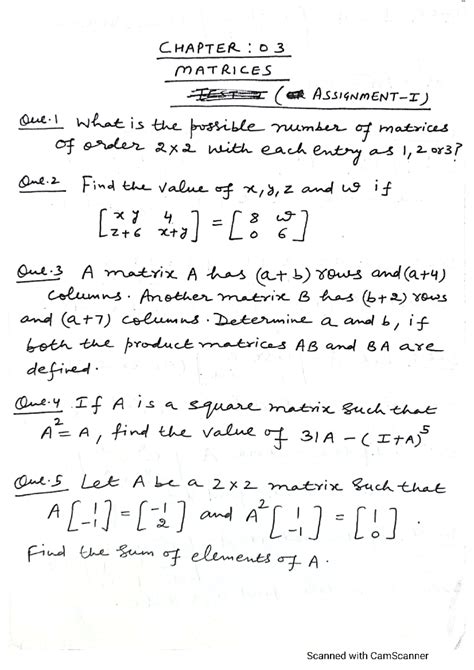 CHAPTER : 03
MATRICES
TEST-I (OR ASSIGNMENT-I)
Que.1 What is the possible number of matrices
of order 2×2 with each entry as 1, 2 or 3?
Que.2 Find the value of x, y, z and w if
[xy 4
z+6 x+y] = [8 w
0 6]
Que.3 A matrix A has (a+b) rows and (a+4)
columns. Another matrix B has (b+2) rows
and (a+7) columns. Determine a and b, if
both the product matrices AB and BA are
defined.
Que.4 If A is a square matrix such that
A² = A, find the value of 31A - (I+A)⁵
Que.5 Let A be a 2×2 matrix such that
A [1
-1] = [-1
2] and A² [1
-1] = [1
0] .
Find the sum of elements of A.
Scanned with CamScanner